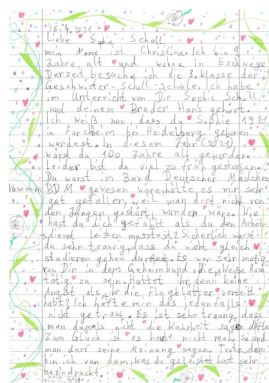 26.4.2021
Liebe Sophie Scholl
mein Name ist Christina. Ich bin 9
Jahre alt und wohne in Eschwege
Derzeit besuche ich die 3. klasse der
Geschwister-Scholl-Schule. Ich habe
im Unterricht von Dir Sophie Scholl
und deinem Bruder Hans gehört.
Ich weiß nun, dass du Sophie 1921
in Forchtheim bei Heidelberg geboren
wurdest. In diesem Jahr (2021)
wärst du 100 Jahre alt geworden.
Leider bist du viel zu früh gestorben.
Du warst im Bund Deutscher Mädchen
BDM gewesen wäre, hätte es mir sehr
gut gefallen, weil man dort nicht von
den Jungen gestört wurden wäre. Wie
hast du dich gefühlt als du den Arbeits
dienst leisten musstest? Sicherlich warst
du sehr traurig, dass du nicht gleich
studieren gehen durftest. Es war sehr mutig
von Dir in dem Geheimbund, die Weiße Rose
tätig zu sein. Hattet ihr denn keine
Angst als ihr die Flugblätter verteilt
habt? Ich hätte mir das jedenfalls
nicht getraut. Es ist sehr traurig, dass
man damals nicht die Wahrheit sagen durfte
Zum Glück ist es heute nicht mehr so und
man darf seine Meinung sagen. Trotzdem
bin ich von dem, was du geleistet hast sehr
beeindruckt.